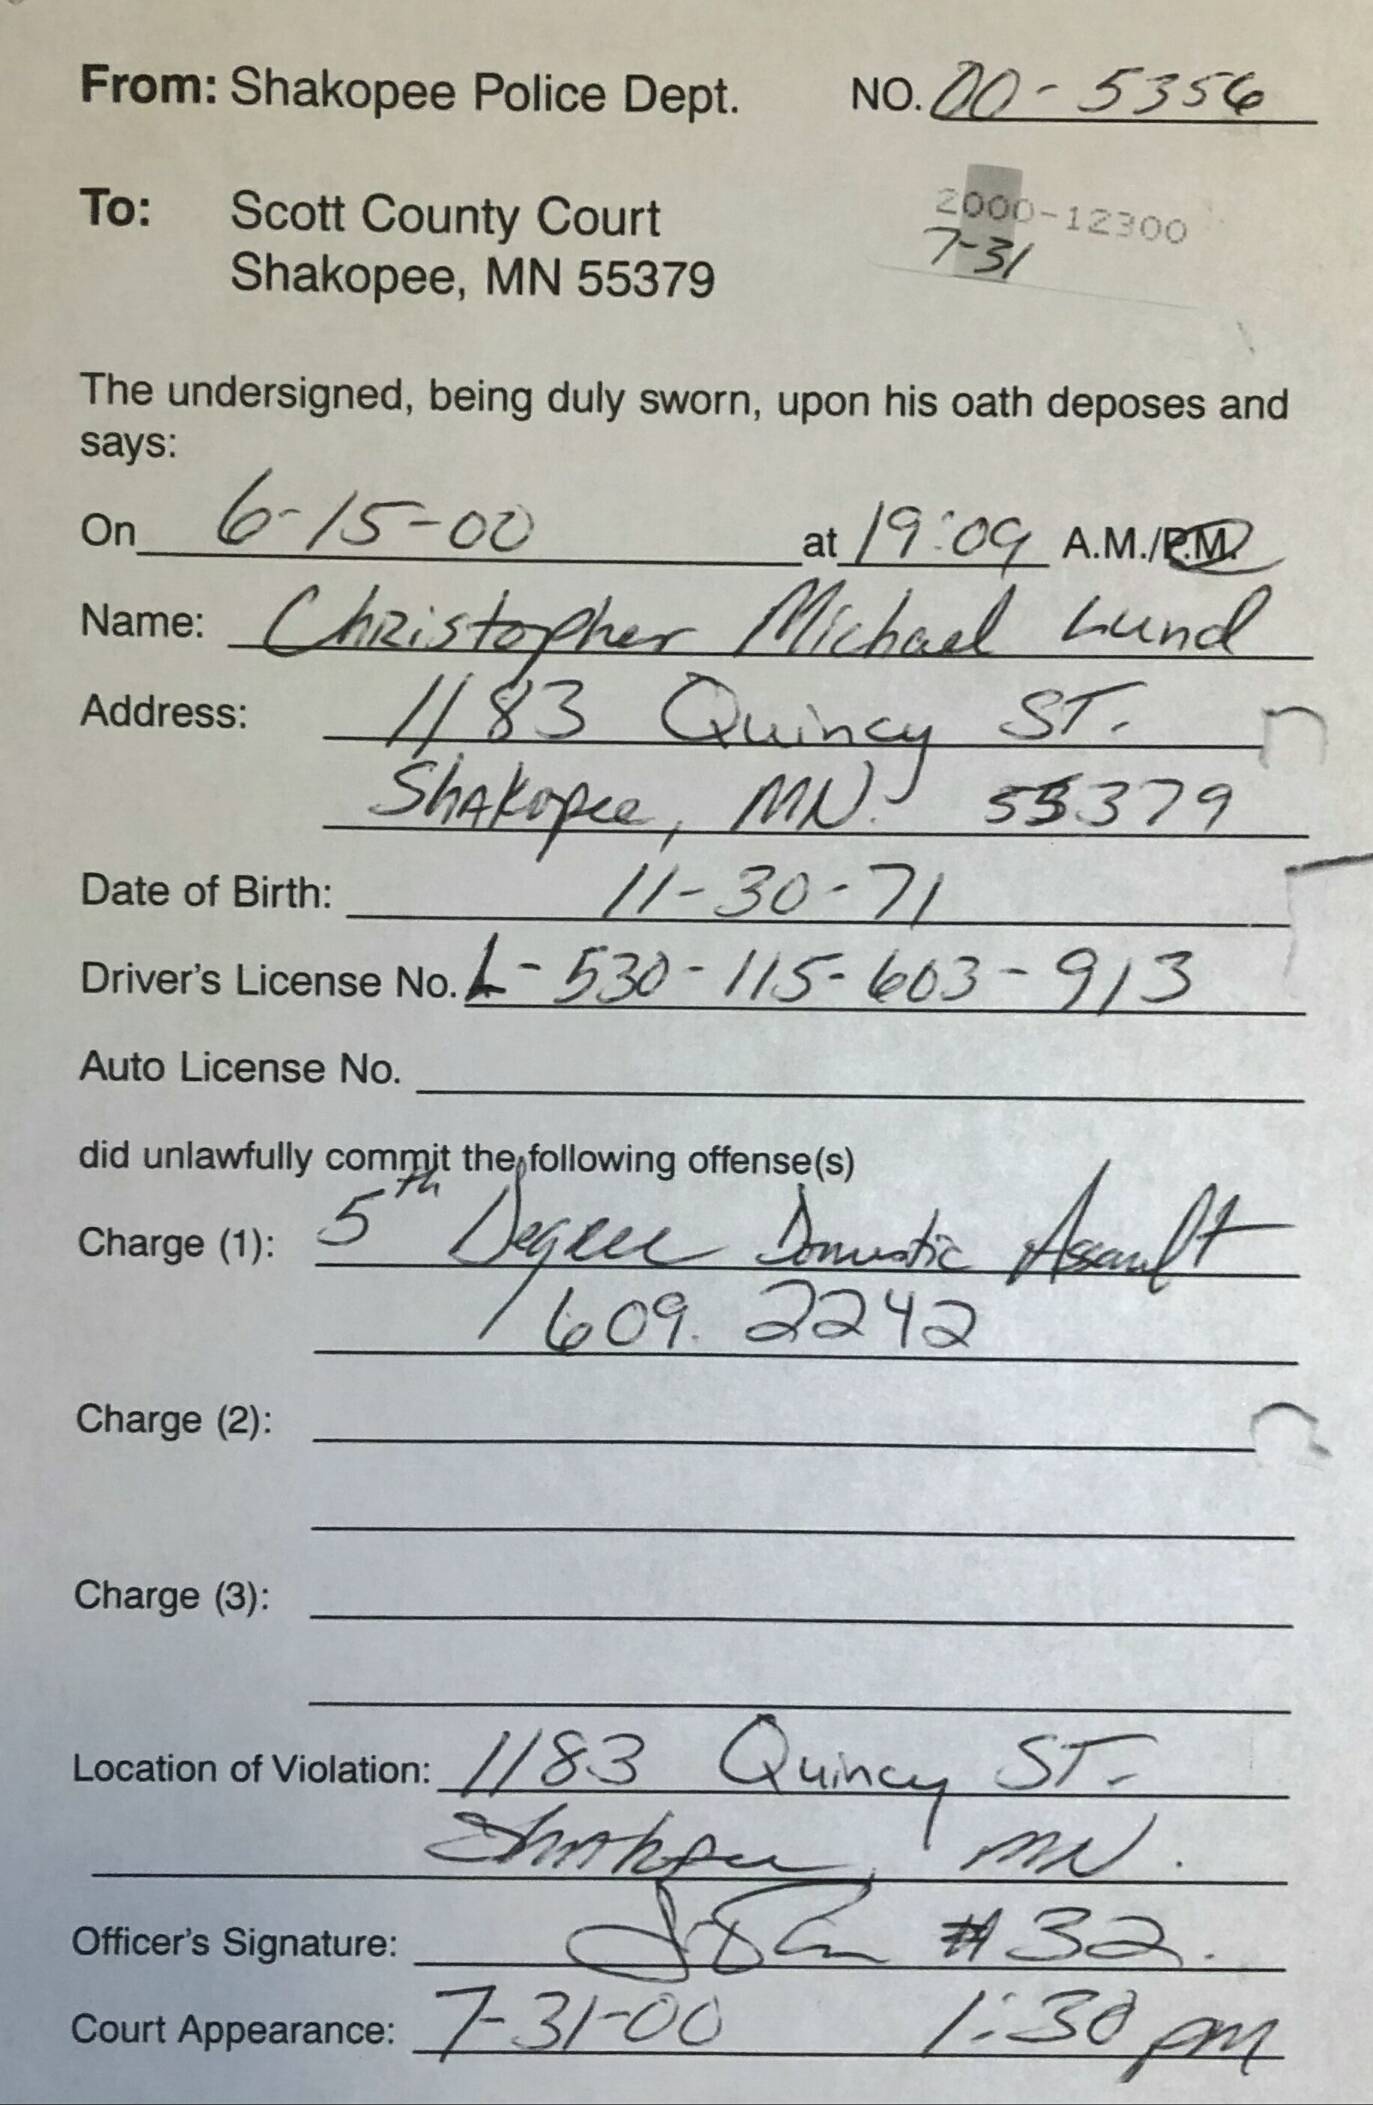 From: Shakopee Police Dept. NO. 00-5356
2000-12300
7-31
To: Scott County Court
Shakopee, MN 55379
The undersigned, being duly sworn, upon his oath deposes and
says:
On 6-15-00 at 19:09 A.M./P.M.
Name: Christopher Michael Lund
Address: 1183 Quincy ST.
Shakopee, MN. 55379
Date of Birth: 11-30-71
Driver's License No. L-530-115-603-913
Auto License No.
did unlawfully commit the following offense(s)
Charge (1): 5th Degree Domestic Assault
/ 609.2242
Charge (2):
Charge (3):
Location of Violation: 1183 Quincy ST.
Shakopee, MN.
Officer's Signature: #32.
Court Appearance: 7-31-00 1:30 pm